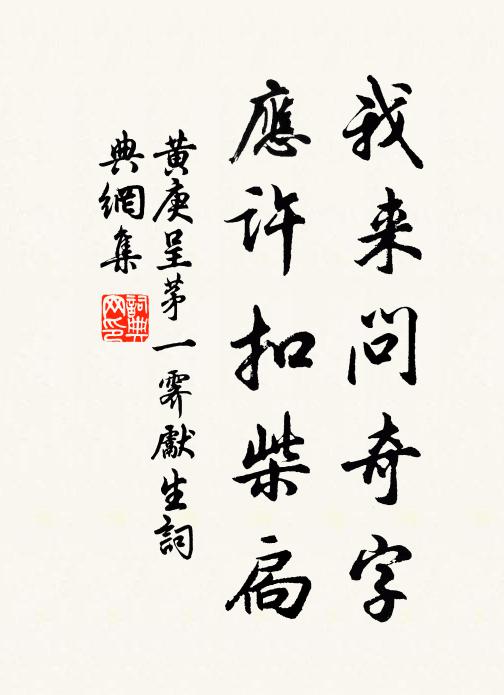 我来問奇字
應許扣柴扃
黄庚呈茅一霽獻生詞
典網集
詞典
网印